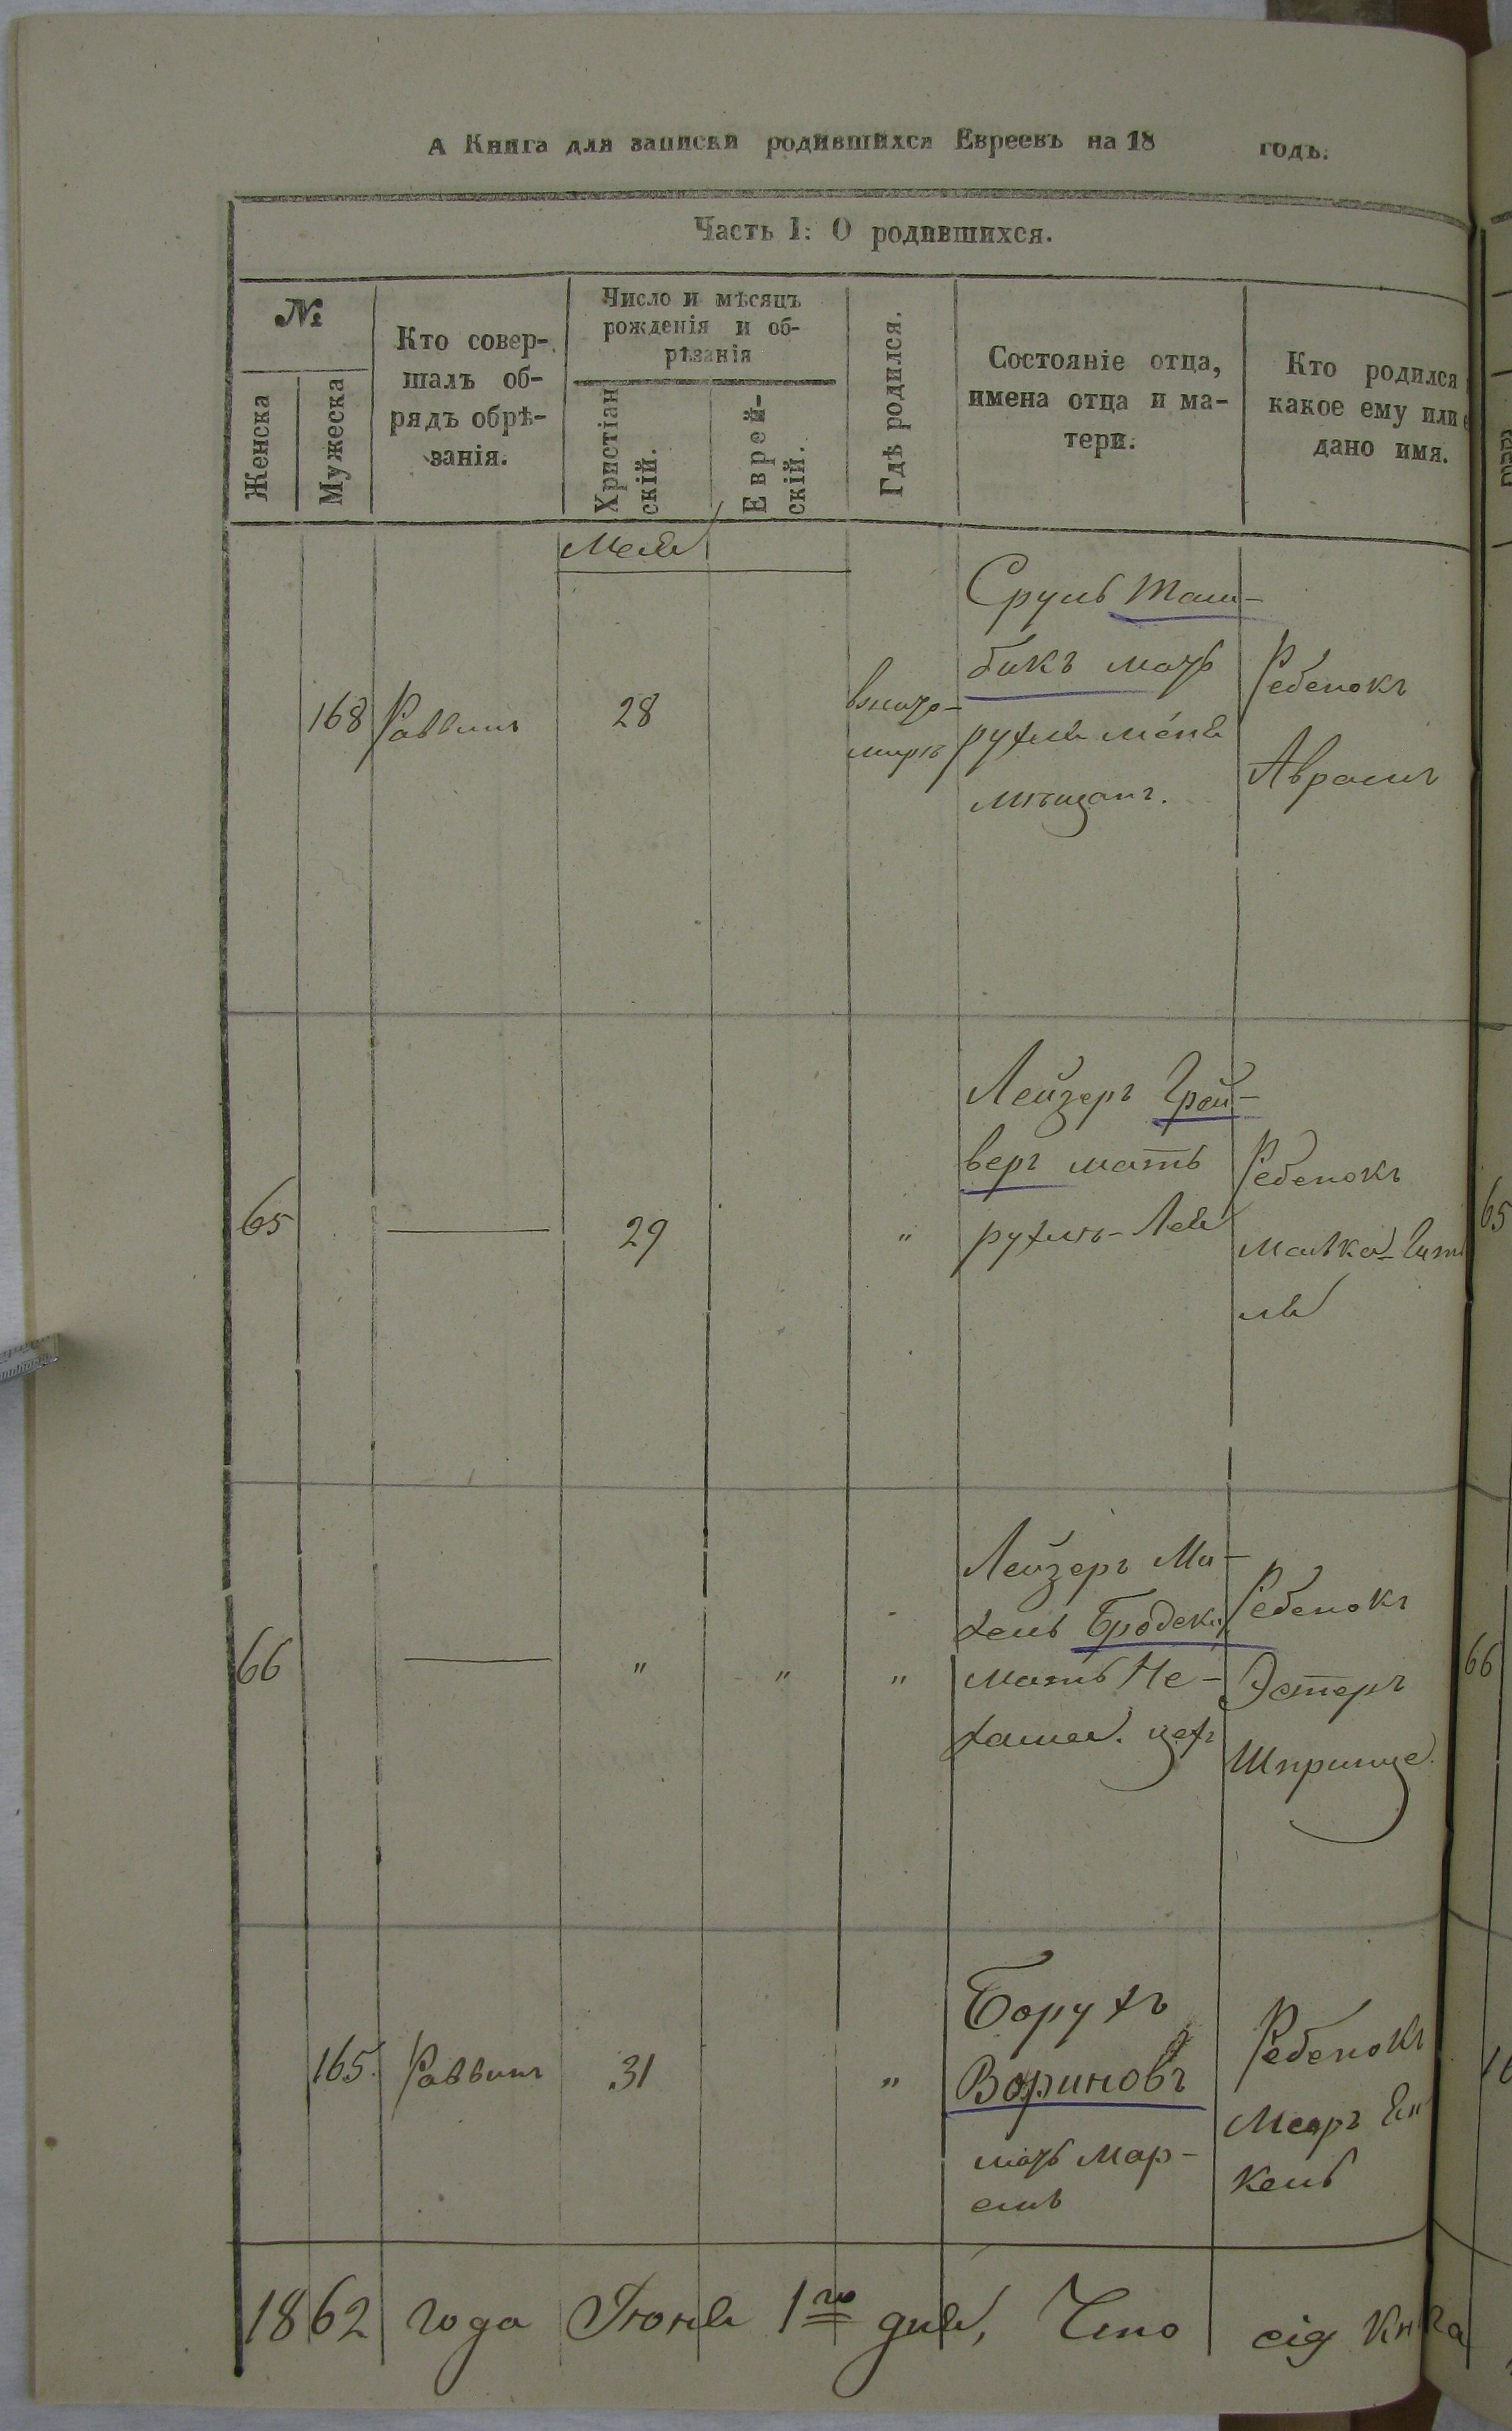 А Книга для записки родившихся Евреевъ на 18 годъ.
Часть I: О родившихся.
№
Женска
Мужеска
Кто совер-
шалъ об-
рядъ обрѣ-
занія.
Число и мѣсяцъ
рожденія и об-
рѣзанія
Христіан
скій.
Еврей-
скій.
Гдѣ родился.
Состояніе отца,
имена отца и ма-
тери.
Кто родился
какое ему или е
дано имя.
Мая
168
Раввинъ
28
вжито-
мирѣ
Сруль Таш-
бикъ мать
рухля
мѣщанъ.
Ребенокъ
Аврамъ
65
29
"
Лейзеръ Грой-
веръ мать
рухль-Лея
Ребенокъ
малка-Гит
ля
65
66
"
"
"
Лейзеръ Ми-
хель Бродскій
мать Не-
хама. цех
Ребенокъ
Эстеръ
Шпринце.
66
165.
Раввинъ
31
"
Борухъ
Вариновъ
мать Мар-
емъ
Ребенокъ
Меоръ Ен
кель
1862 года Июня 1го дня, Что сія Книга